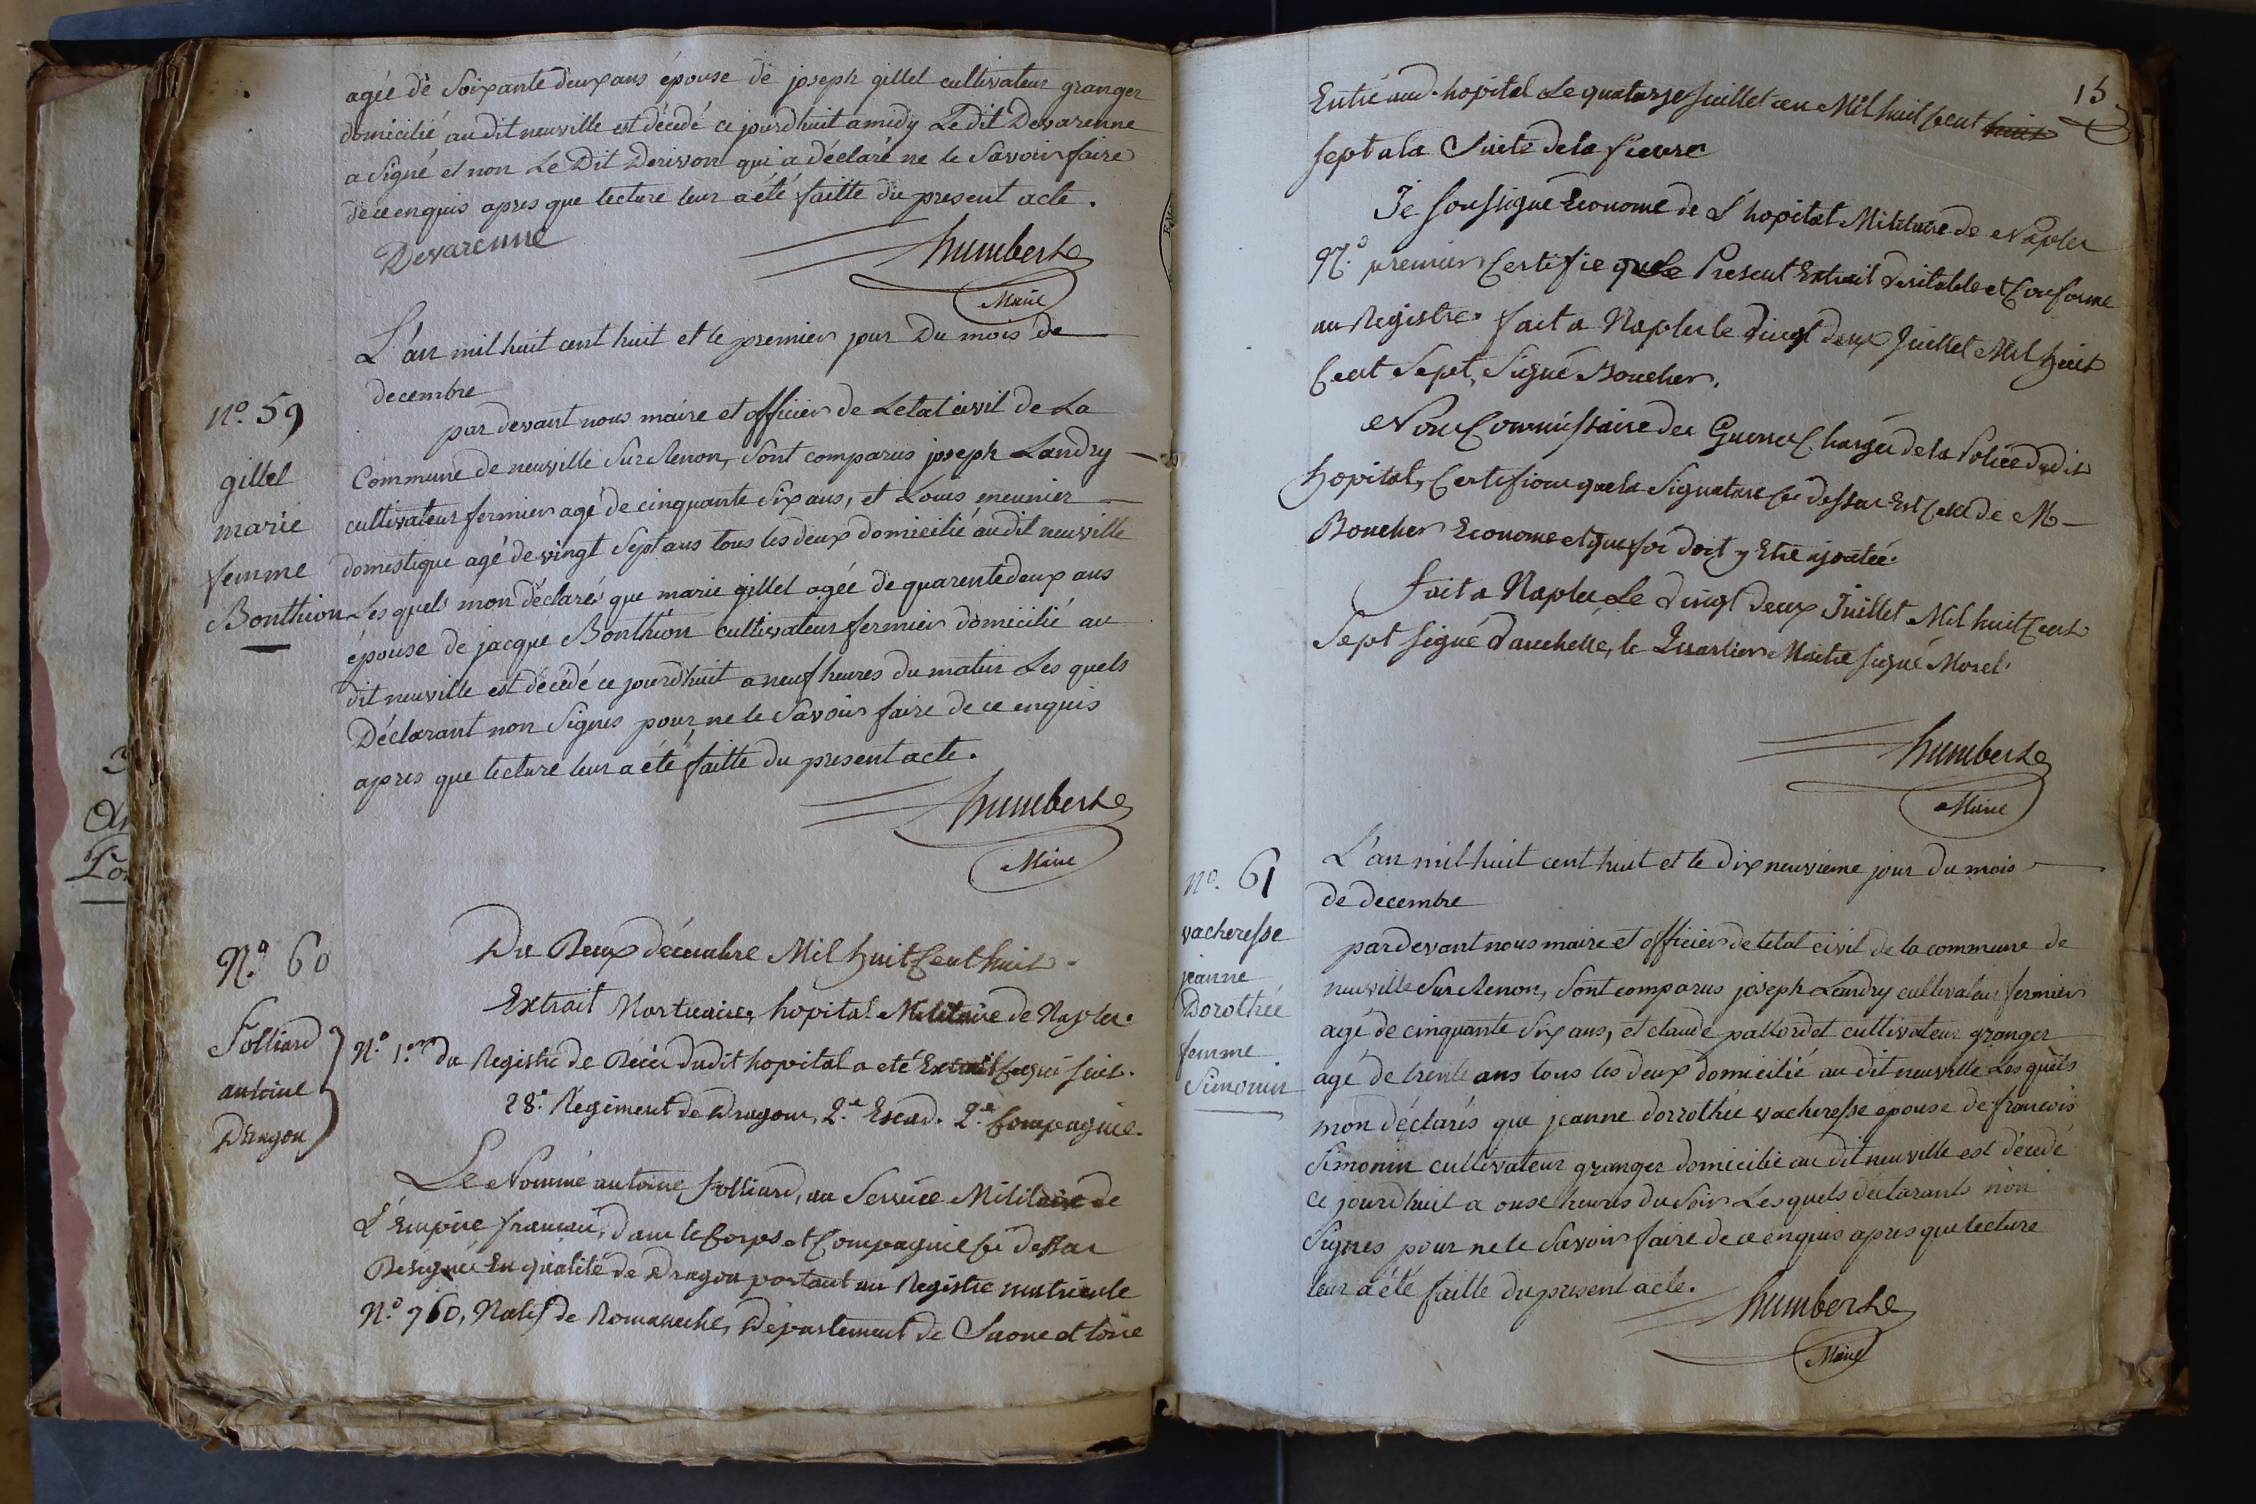 agée de Soixante deux ans épouse de joseph gillet cultivateur granger
domicilié au dit neuville est décédé ce jourdhuit a midy Le dit Devarenne
a Signé et non Le Dit Derivon qui a déclaré ne le Savoir faire
de ce enquis apres que lecture leur a été faitte du present acte.
Devarenne
humbert
Maire
L'an mil huit cent huit et le premier jour Du mois de
decembre
No. 59
gillet
marie
femme
Bonthion
par devant nous maire et officier de Letat civil de La
Commune de neuville Sur Renon, Sont comparus joseph Landry
cultivateur fermier agé de cinquante Six ans, et Louis meunier
domestique agé de vingt Sept ans tous les deux domicilié au dit neuville
Les quels mon déclarés que marie gillet agée de quarente deux ans
épouse de jacque Bonthion cultivateur fermier domicilié au
dit neuville est décédé ce jourdhuit a neuf heures du matin Les quels
Déclarant non Signes pour ne le Savoir faire de ce enquis
apres que lecture leur a été faitte du present acte.
humbert
Maire
No. 60
Folliard
antoine
Dragon
Du Deux décembre Mil huit Cent huit.
Extrait Mortuaire, hopital Militaire de Naples.
No. 1.er du Registre de Décès dudit hopital a eté Extrait Ce qui suit.
28.e Régiment de Dragons, 2.e Escad. 2.e Compagnie.
Le Nommé antoine folliard, au Service Militaire de
L'Empire français, dans le Corps et Compagnie Ci dessus
Désignés En qualité de Dragon portant au Registre matricule
No. 760, Natif de Romaneche, Département de Saone et loire
15
Entré aud. hopital Le quatorze Juillet an Mil huit Cent huit
sept a la Suite de la fievre
Je soussigné Econome de L'hopital Militaire de Naples
No. premier Certifie que Le Present Extrait Veritable et Conforme
au Registre. fait a Naples le vingt deux Juillet Mil huit
Cent Sept, Signé Boucher.
Nous Commissaire des Guerres Chargés de la Police dudit
hopital, Certifions que la Signature Ci dessus Est Celle de M
Boucher Econome et que foi doit y Etre ajoutée.
fait a Naples Le vingt deux Juillet Mil huit Cent
Sept signé Dauchelle, le Quartier Maitre signé Morel.
humbert
Maire
No. 61
vacheresse
jeanne
Dorothée
femme
Simonin
L'an mil huit cent huit et le dix neuvieme jour du mois
de decembre
par devant nous maire et officier de letat civil de la commune de
neuville Sur Renon, Sont comparus joseph Landry cultivateur fermier
agé de cinquante Six ans, et claude pallordet cultivateur granger
agé de trente ans tous les deux domicilié au dit neuville Les quels
mon déclarés que jeanne dorrothée vacheresse épouse de francois
Simonin cultivateur granger domicilié au dit neuville est décédé
ce jourdhuit a onse heures du Soir Les quels déclarants non
Signes pour ne le Savoir faire de ce enquis apres que lecture
leur a été faitte du present acte.
humbert
Maire